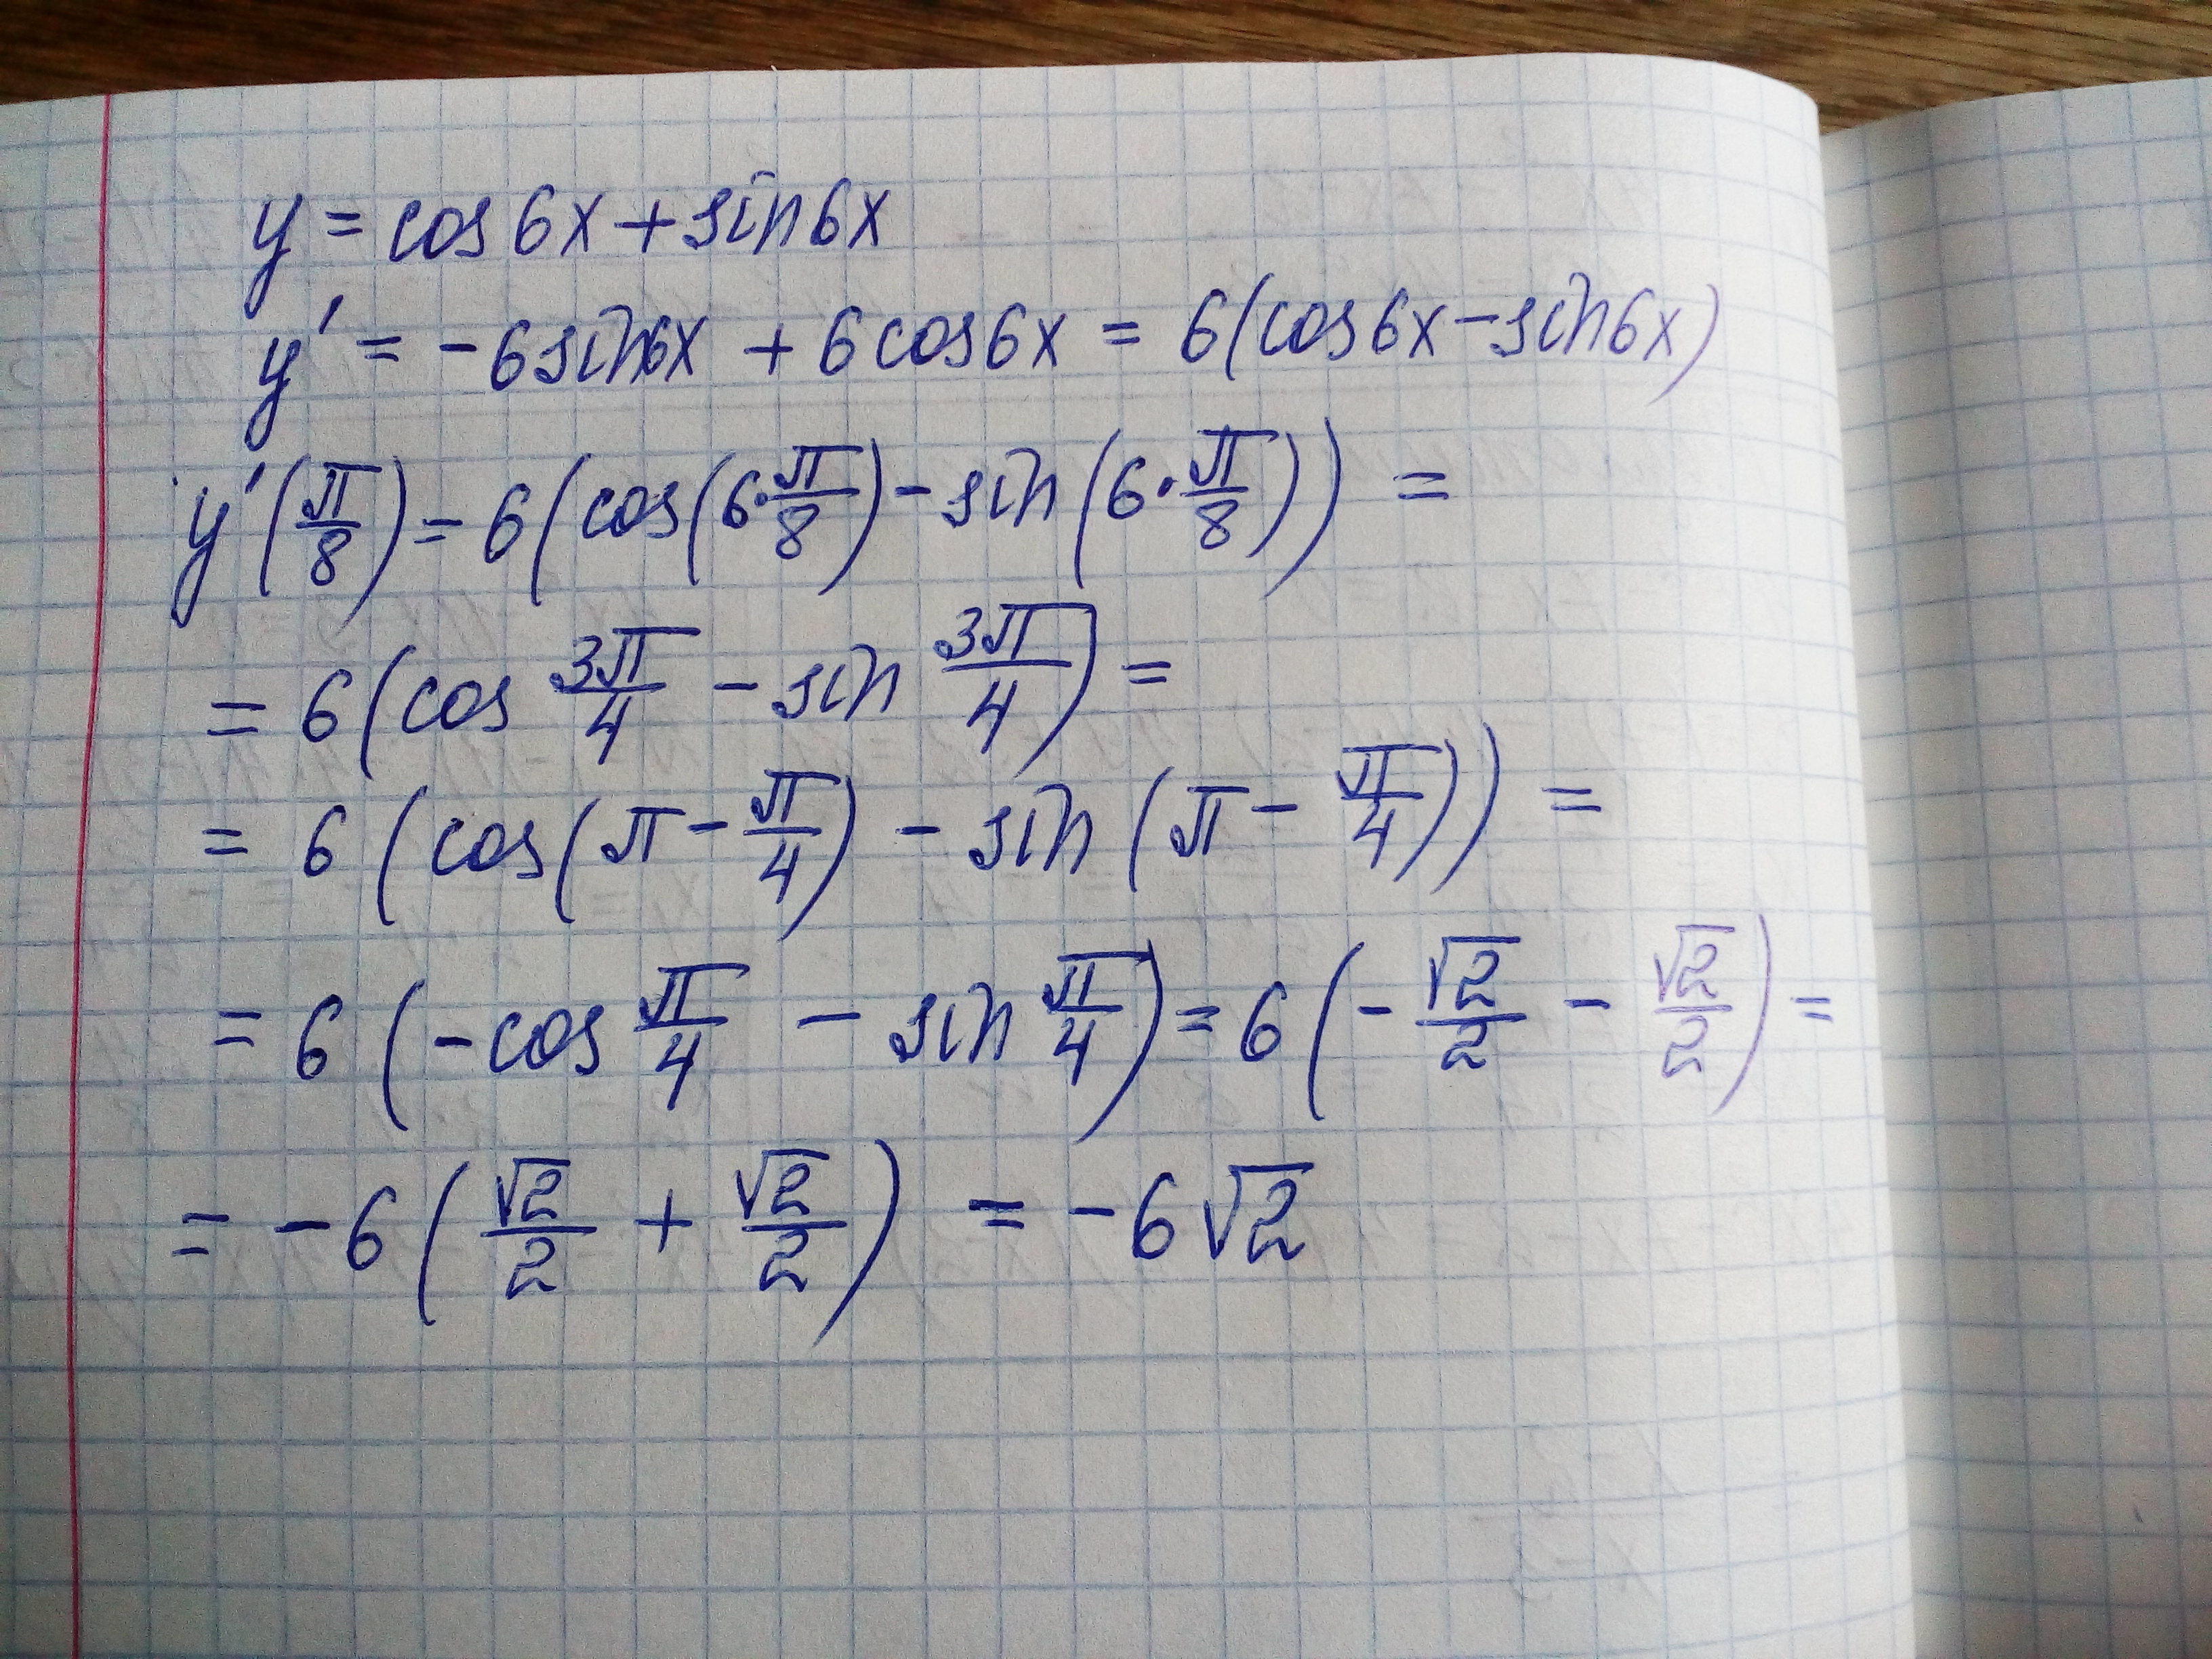 y = cos 6x + sin 6x
y' = -6 sin 6x + 6 cos 6x = 6(cos 6x - sin 6x)
y'(π/8) = 6(cos(6·π/8) - sin(6·π/8)) =
= 6(cos 3π/4 - sin 3π/4) =
= 6(cos(π - π/4) - sin(π - π/4)) =
= 6(-cos π/4 - sin π/4) = 6(-√2/2 - √2/2) =
= -6(√2/2 + √2/2) = -6√2